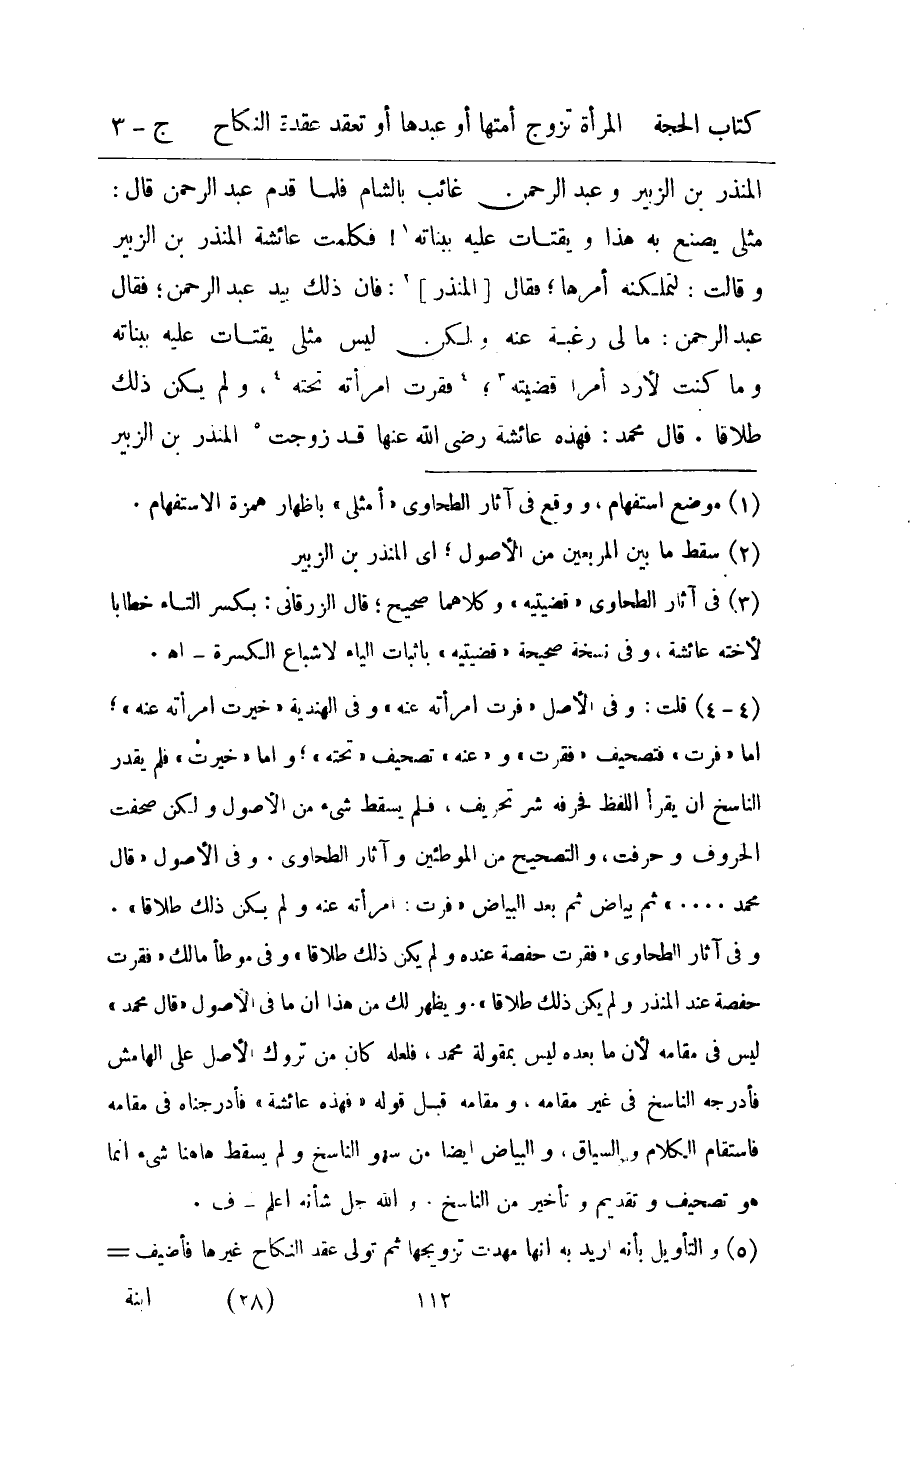 كتاب الحجة المرأة تزوج أمتها أو عبدها أو تعقد عقدة النكاح ج - ٣
المنذر بن الزبير و عبد الرحمن غائب بالشام فلما قدم عبد الرحمن قال :
مثلى يصنع به هذا و يفتات عليه ببناته ١ ! فكلمت عائشة المنذر بن الزبير
و قالت : لتملكنه أمرها ؛ فقال [ المنذر ] ٢ : فان ذلك بيد عبد الرحمن ؛ فقال
عبد الرحمن : ما لى رغبة عنه و لكن ليس مثلى يفتات عليه ببناته
و ما كنت لأرد أمرا قضيته ٣ ؛ ٤ فقرت امرأته تحته ٤ ، و لم يكن ذلك
طلاقا . قال محمد : فهذه عائشة رضى الله عنها قد زوجت ٥ المنذر بن الزبير
(١) موضع استفهام ، و وقع فى آثار الطحاوى « أ مثلى » باظهار همزة الاستفهام .
(٢) سقط ما بين المربعين من الأصول ؛ اى المنذر بن الزبير
(٣) فى آثار الطحاوى « قضيتيه » و كلاهما صحيح ؛ قال الزرقانى : بكسر التاء خطابا
لأخته عائشة ، و فى نسخة صحيحة « قضيتيه » باثبات الياء لاشباع الكسرة - اه .
(٤ - ٤) قلت : و فى الأصل « فرت امرأته عنه » و فى الهندية « خيرت امرأته عنه » ؛
اما « فرت » فتصحيف « فقرت » و « عنه » تصحيف « تحته » ؛ و اما « خيرت » فلم يقدر
الناسخ ان يقرأ اللفظ فحرفه شر تحريف ، فلم يسقط شىء من الأصول و لكن صحفت
الحروف و حرفت ، و التصحيح من الموطئين و آثار الطحاوى . و فى الأصول « قال
محمد .... » ثم بياض ثم بعد البياض « فرت : امرأته عنه و لم يكن ذلك طلاقا » .
و فى آثار الطحاوى « فقرت حفصة عنده و لم يكن ذلك طلاقا » و فى موطأ مالك « فقرت
حفصة عند المنذر و لم يكن ذلك طلاقا » . و يظهر لك من هذا ان ما فى الأصول « قال محمد »
ليس فى مقامه لأن ما بعده ليس بمقولة محمد ، فلعله كان من تروك الأصل على الهامش
فأدرجه الناسخ فى غير مقامه ، و مقامه قبل قوله « فهذه عائشة » فأدرجناه فى مقامه
فاستقام الكلام و السياق ، و البياض ايضا من سهو الناسخ و لم يسقط هاهنا شىء انما
هو تصحيف و تقديم و تأخير من الناسخ . و الله جل شأنه اعلم - ف .
(٥) و التأويل بأنه اريد به انها مهدت تزويجها ثم تولى عقد النكاح غيرها فأضيف =
١١٢ (٢٨) ابنة